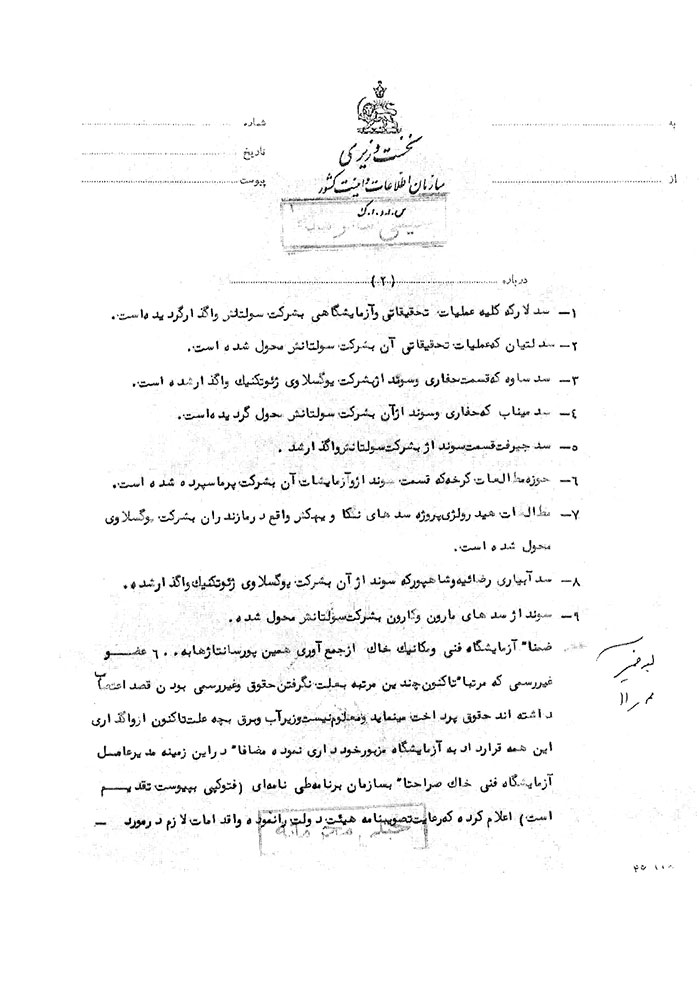 به
شماره
نخست وزیری
تاریخ
از
سازمان اطلاعات و امنیت کشور
پیوست
س.ا.و.ا.ک
درباره (۲)
۱- سد لارکه کلیه عملیات تحقیقاتی وآزمایشگاهی بشرکت سولتانش واگذارگردیده‌است.
۲- سد لتیان که‌عملیات تحقیقاتی آن بشرکت سولتانش محول شده است.
۳- سد ساوه که‌قسمت‌حفاری وسونداژبشرکت یوگسلاوی ژئوتکنیک واگذارشده است.
٤- سد میناب که‌حفاری وسونداژآن بشرکت سولتانش محول گردیده‌است.
۵- سد جیرفت‌قسمت سونداژ بشرکت‌سولتانش‌واگذارشد .
٦- حوزه‌مطالعات کرخه‌که قسمت سونداژوآزمایشات آن بشرکت پرماسپرده شده است.
۷- مطالعات هیدرولژی‌پروژه سدهای نکا و واقع درمازندران بشرکت یوگسلاوی
محول شده است.
۸- سدآبیاری رضائیه‌وشاهپورکه سونداژآن بشرکت یوگسلاوی ژئوتکنیک‌واگذارشده.
۹- سونداژسدهای مارون وکارون بشرکت‌سولتانش محول شده.
ضمنا" آزمایشگاه فنی ومکانیک خاک ازجمع‌آوری همین پورسانتاژهابه ٦۰۰ عضو
غیررسمی که مرتبا"تاکنون‌چندین مرتبه بعلت نگرفتن‌حقوق وغیررسمی بودن قصداعتصاب
داشته اندحقوق پرداخت مینماید ومعلوم‌نیست‌وزیرآب وبرق بچه علت‌تاکنون ازواگذاری
این همه قرارداد به آزمایشگاه مزبورخودداری نموده مضافا" دراین زمینه مدیرعامل
آزمایشگاه فنی خاک صراحتا" بسازمان برنامه‌طی نامه‌ای (فتوکپی بپیوست تقدیم
است) اعلام کرده که‌رعایت‌تصویبنامه هیئت دولت رانموده واقدامات لازم درمورد -
خیلی محرمانه